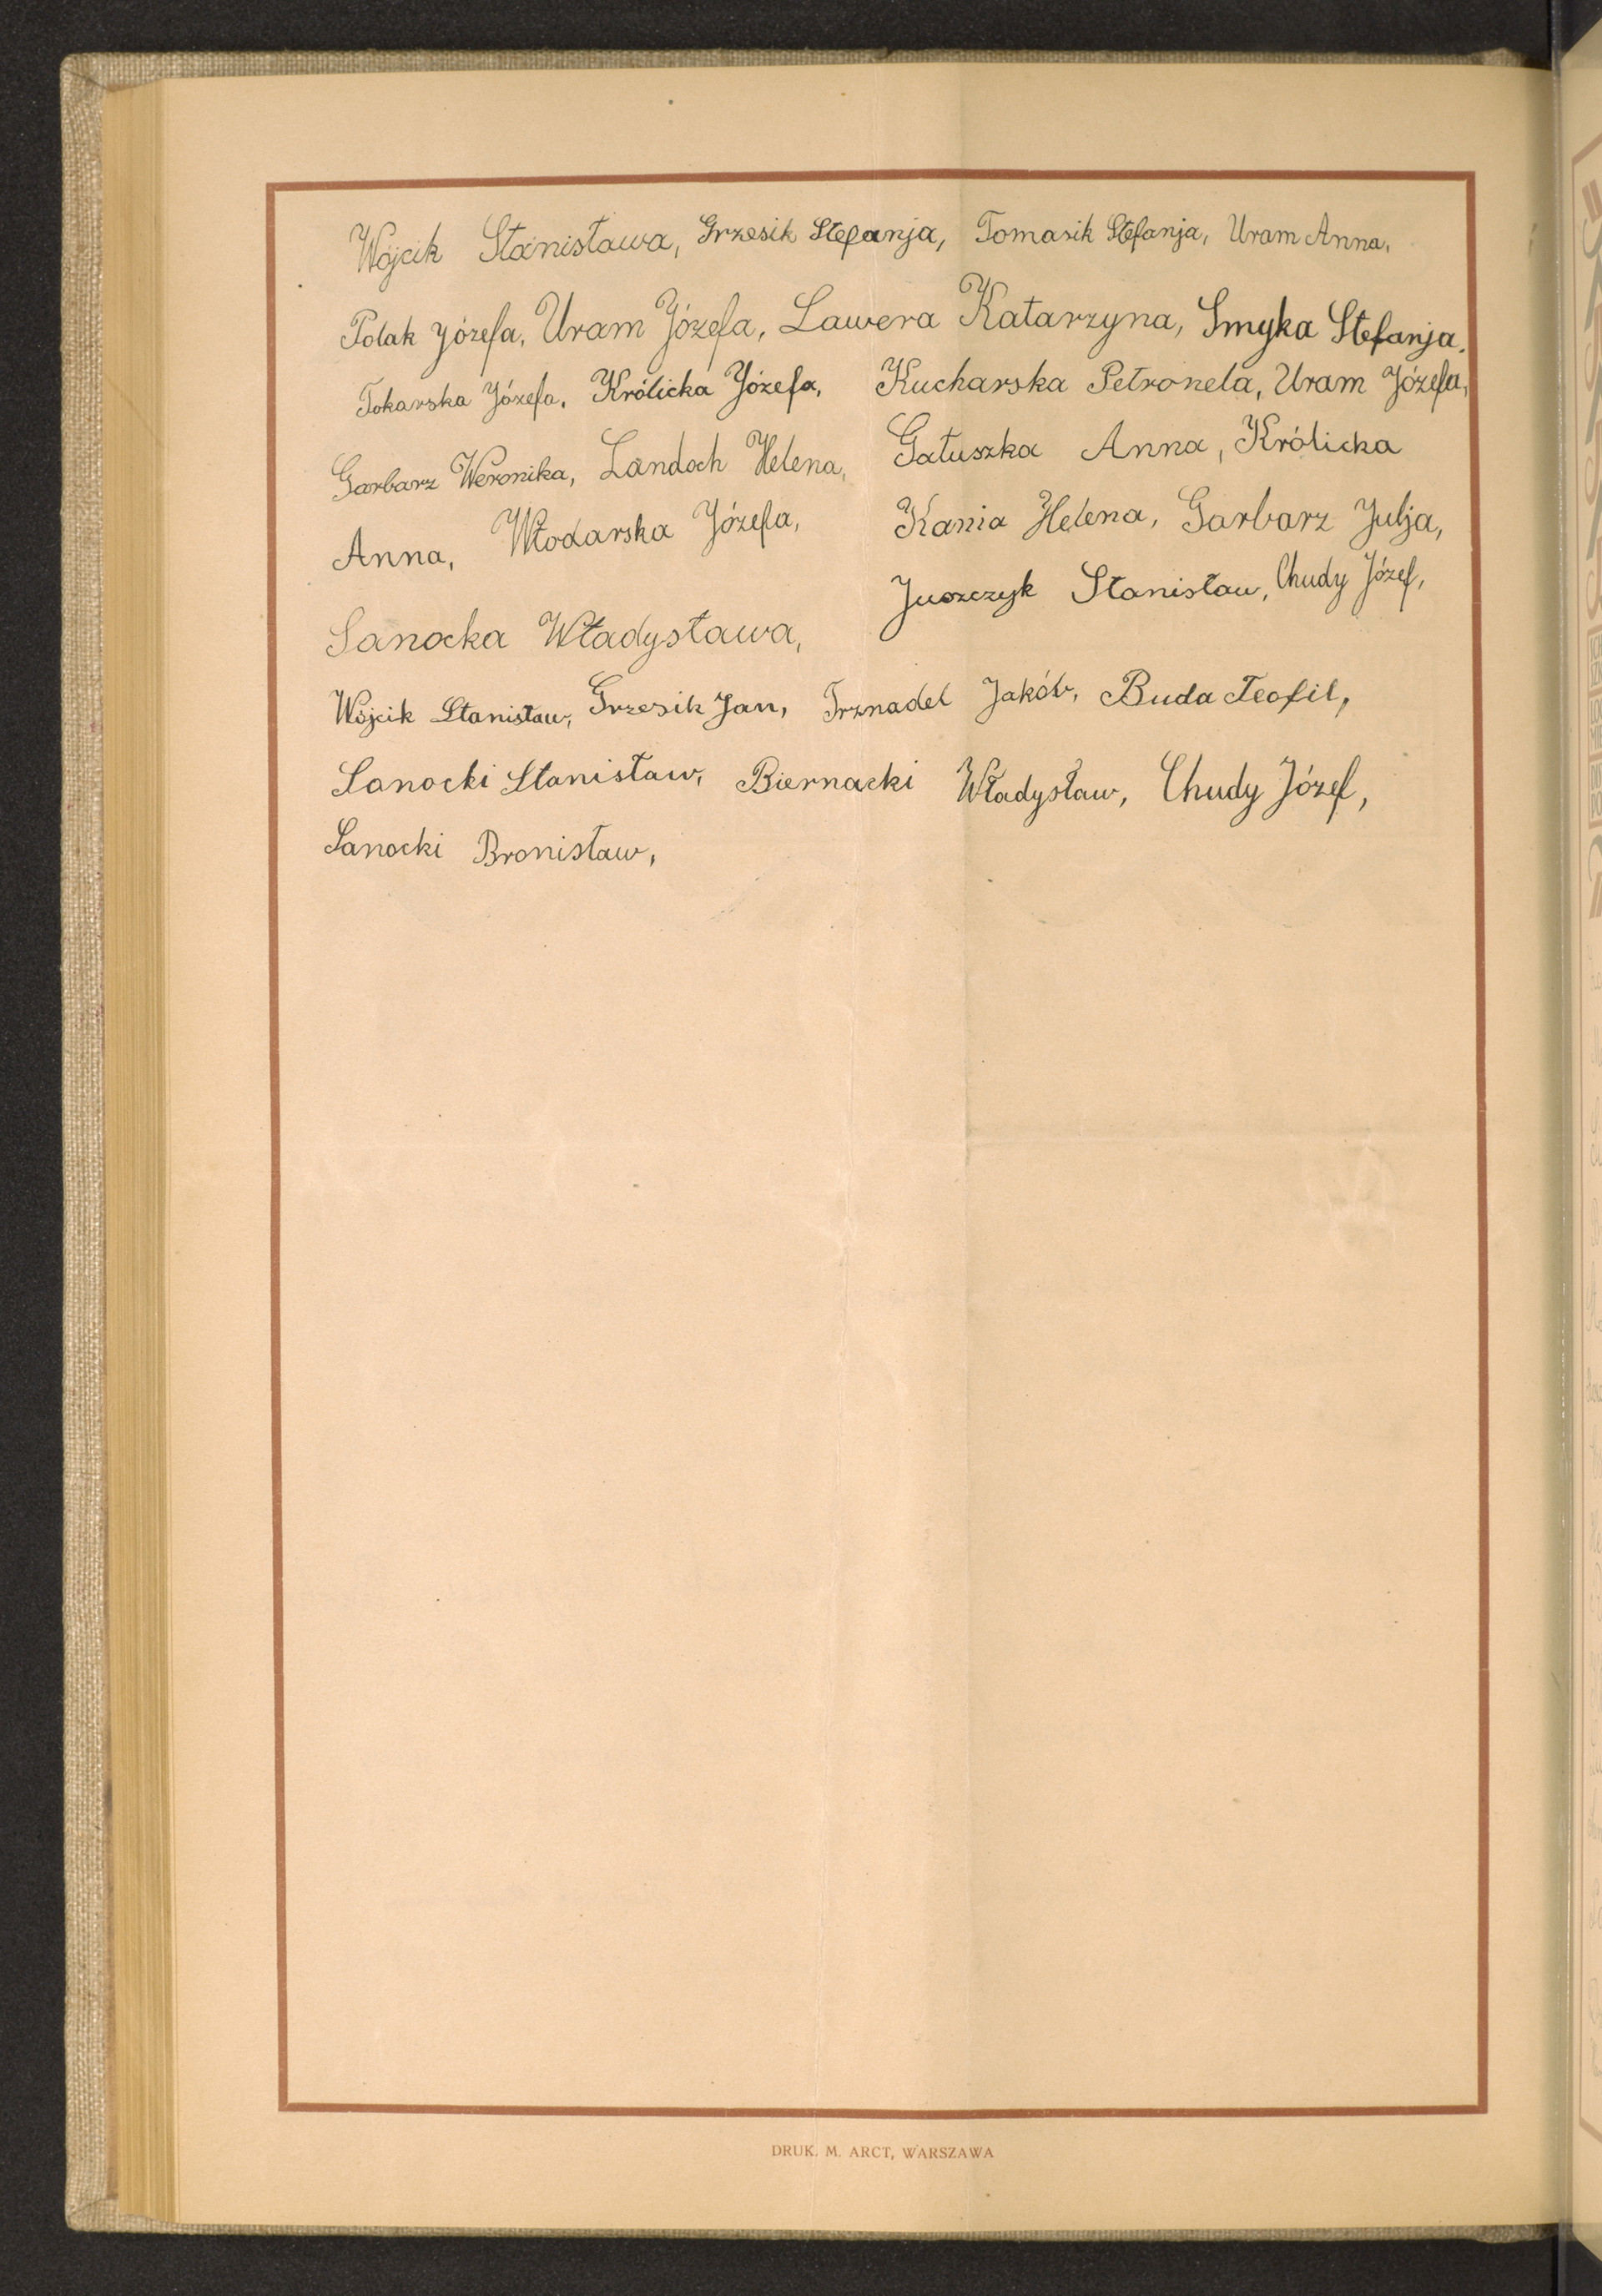 Wójcik Stanisława, Grzesik Stefanja, Tomasik Stefanja, Uram Anna,
Polak Józefa, Uram Józefa, Lawera Katarzyna, Smyka Stefanja,
Tokarska Józefa, Królicka Józefa, Kucharska Petronela, Uram Józefa,
Garbarz Weronika, Landoch Helena, Gałuszka Anna, Królicka
Anna, Włodarska Józefa, Kania Helena, Garbarz Julja,
Sanocka Władysława, Juszczyk Stanisław, Chudy Józef,
Wójcik Stanisław, Grzesik Jan, Trznadel Jakób, Buda Teofil,
Sanocki Stanisław, Biernacki Władysław, Chudy Józef,
Sanocki Bronisław,
DRUK. M. ARCT, WARSZAWA